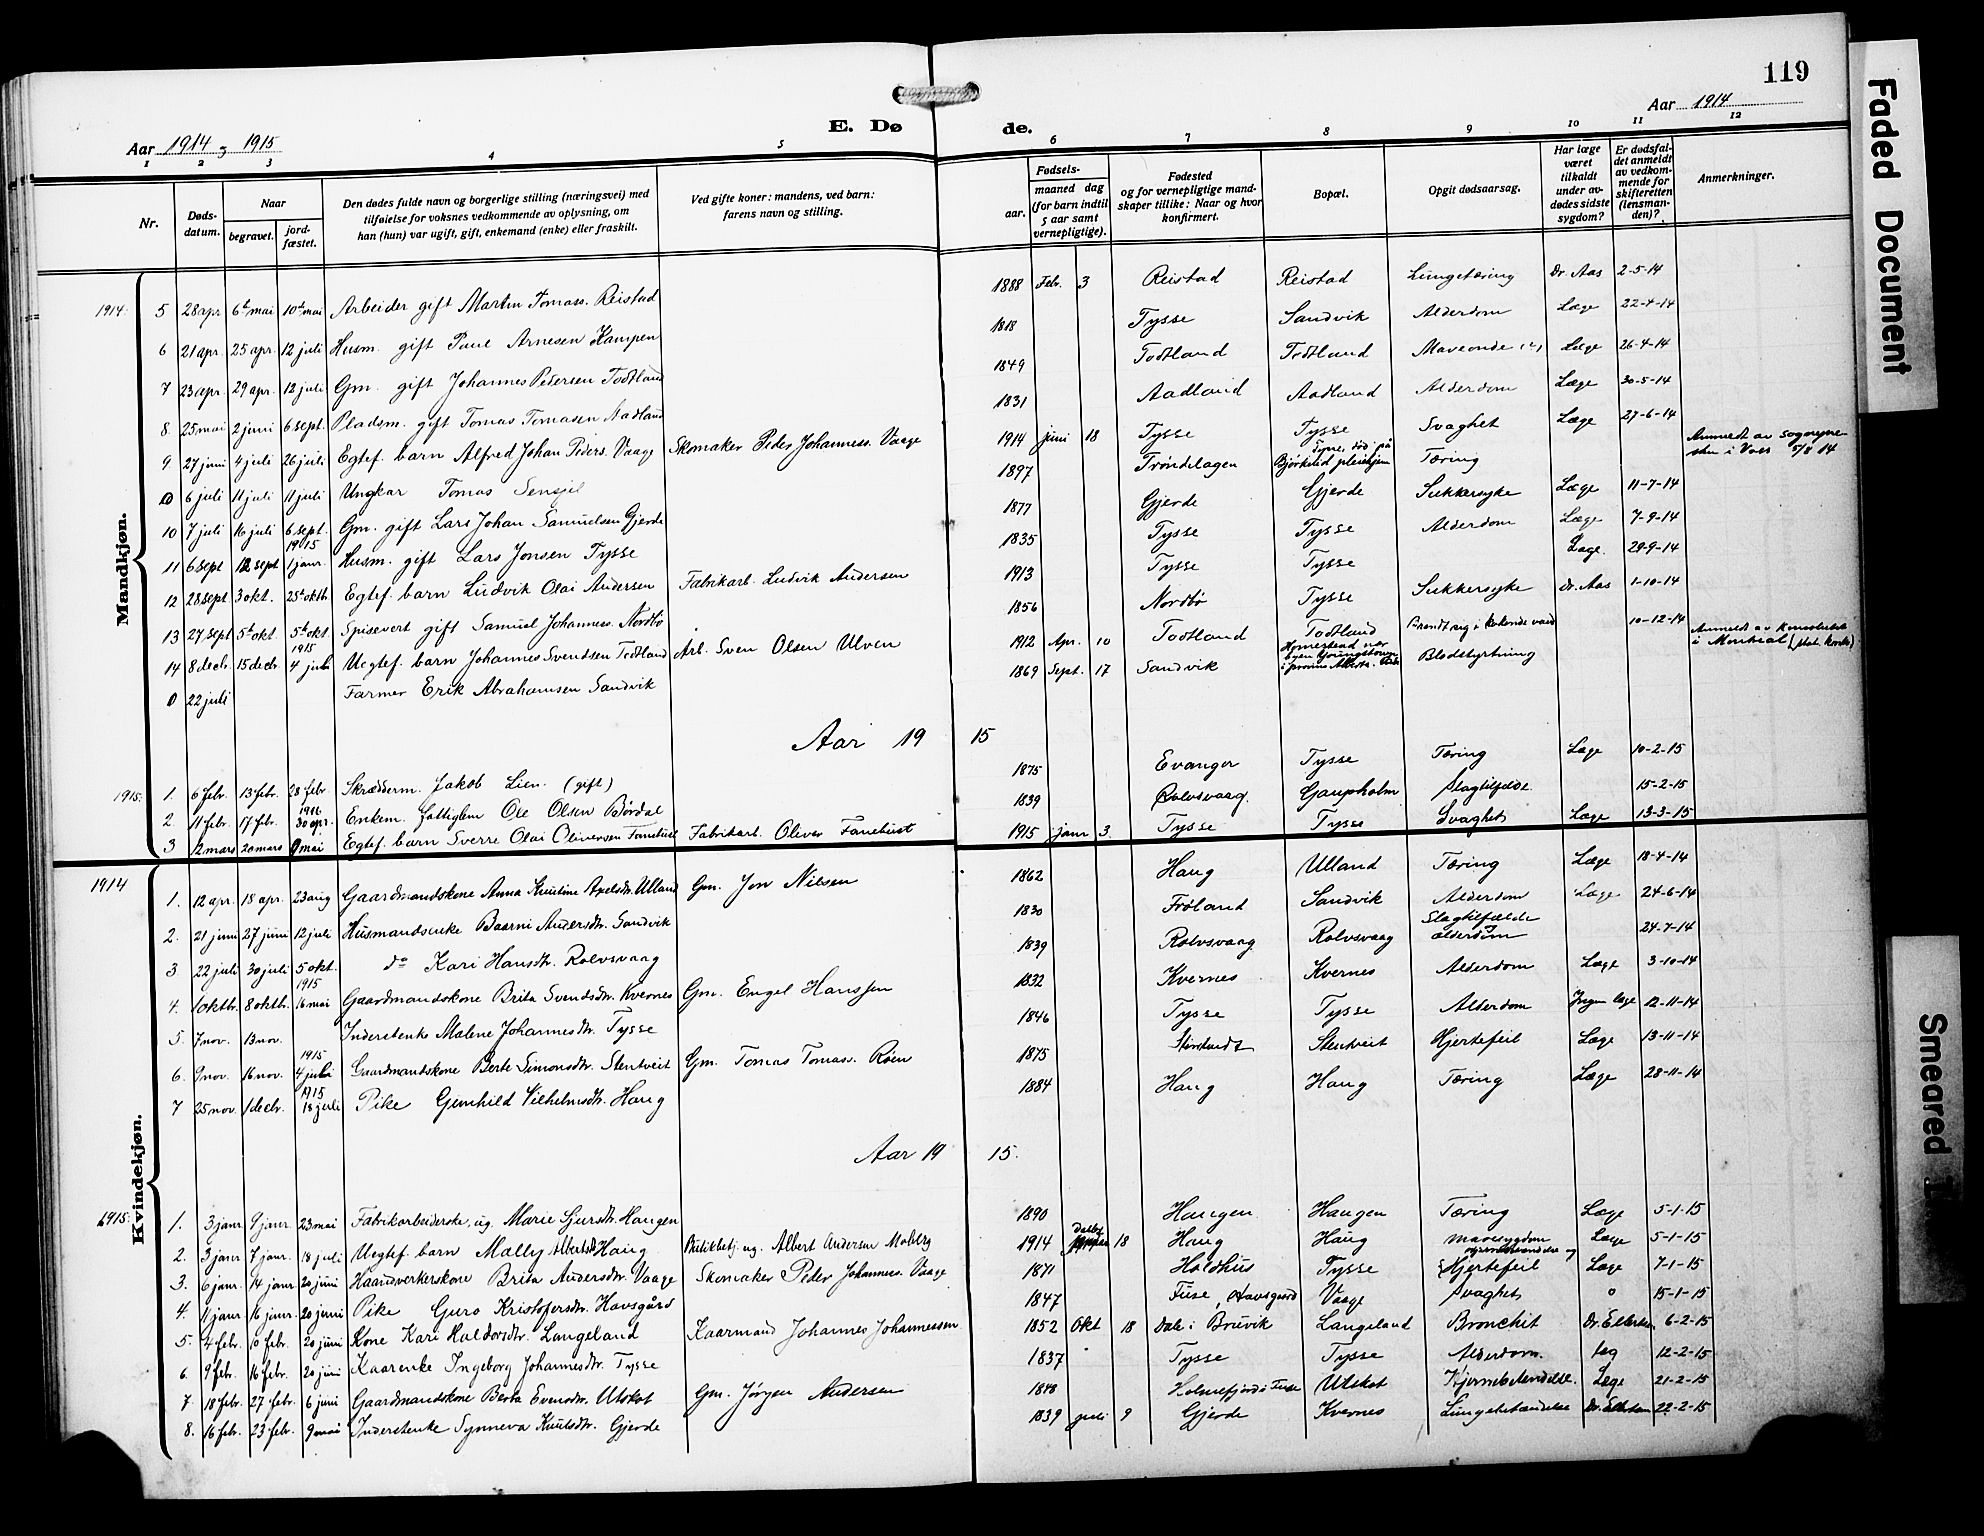 119
Aar 1914 og 1915
E. Dø de.
Aar 1914
1 2 3 4 5 6 7 8 9 10 11 12
Nr.
Døds-datum.
Naar
begravet.
jord-fæstet.
Den dødes fulde navn og borgerlige stilling (næringsvei) med tilføielse for voksnes vedkommende av oplysning, om han (hun) var ugift, gift, enkemand (enke) eller fraskilt.
Ved gifte koner: mandens, ved barn: farens navn og stilling.
Fødsels-
aar.
maaned dag (for barn indtil 5 aar samt vernepligtige).
Fødested og for vernepligtige mandskaper tillike: Naar og hvor konfirmert.
Bopæl.
Opgit dødsaarsag.
Har læge været tilkaldt under avdødes sidste sygdom?
Er dødsfaldet anmeldt av vedkommende for skifteretten (lensmanden)?
Anmerkninger.
Mandkjøn.
1914: 5 28 apr 6te mai 10de mai Arbeider gift Martin Tomass. Reistad 1888 Febr. 3 Reistad Reistad Lungetæring Dr. Aas 2-5-14
6 21 apr. 25 apr. 12 juli Husm. gift Paul Arnesen Kampen 1818 Tysse Sandvik Alderdom Læge 22-4-14
7 23 apr. 29 apr. 12 juli Gm. gift Johannes Pedersen Todtland 1849 Todtland Todtland Maveonde Læge 26-4-14
8. 25 mai 2 juni 6 sept. Pladsm. gift Tomas Tomasen Aadland 1831 Aadland Aadland Alderdom Læge 30-5-14
9. 27 juni 4 juli 26 juli Egtef. barn Alfred Johan Peders. Vaage Skomaker Peder Johanness. Vaage 1914 juni 18 Tysse Tysse Svaghet Læge 27-6-14
0 6 juli 11 juli 11 juli Ungkar Tomas 1897 Trøndelagen død på Bjørkelid pleiehjem Tæring Anmeldt av i Voss 5/8 14
10 7 juli 16 juli 6 sept. Gm. gift Lars Johan Samuelsen Gjerde 1877 Gjerde Gjerde Sukkersyke Læge 11-7-14
11 6 sept 12 sept 1915 1 janr. Husm. gift Lars Jonsen Tysse 1835 Tysse Tysse Alderdom Læge 7-9-14
12 28 sept 3 okt. 25de oktb Egtef. barn Ludvik Olai Andersen Fabrikarb. Ludvik Andersen 1913 Tysse Tysse Læge. 29-9-14
13 27 sept 5te okt. 5te okt. Spisevert gift Samuel Johanness. Nordbø 1856 Nordbø Tysse Sukkersyke Dr. Aas 1-10-14
14 8 decbr. 15 decbr 1915 4 juli Uegtef. barn Johannes Svendsen Todtland Arb. Sven Olsen Ulven 1912 Apr. 10 Todtland Todtland Brændt seg i kokende vand 10-12-14
0 22 juli Farmer Erik Abrahamsen Sandvik 1869 Sept. 17 Sandvik Homestead nær byen Youngstown i provins Alberta. Blodstyrtning Anmeldt av Konsulatet i Montreal
Aar 19 15
1915: 1. 6 febr. 13 febr. 28 febr. Skrædderm. Jakob Lien. (gift) 1875 Evanger Tysse Tæring Læge 10-2-15
2. 11 febr. 17 febr. 1916 30 apr. Enkem. fattiglem Ole Olsen Børdal 1839 Rolvsvaag. Gaupholm Slagtilfælde. 15-2-15
3 12 mars 20 mars 9 mai Egtef. barn Sverre Olai Oliversen Fanehust Fabrikarb. Oliver Fanehust 1915 janr 3 Tysse Tysse Svaghet Læge 13-3-15
Kvindekjøn.
1914 1. 12 apr. 18 apr. 23 aug Gaardmandskone Anna Kristine Axelsdtr. Ulland Gm. Jon Nilsen 1862 Haug Ulland Tæring Læge 18-4-14
2. 21 juni 27 juni 12 juli Husmandsenke Baarni Andersdtr. Sandvik 1830 Frøland Sandvik Alderdom Læge 24-6-14
3 22 juli 30 juli 5 okt. do Kari Hansdtr. Rolvsvaag 1839 Rolvsvaag Rolvsvaag Slagtilfælde og alderdom 24-7-14
4. 1 oktbr. 8 oktbr. 1915 16 mai Gaardmandskone Brita Svendsdtr. Kvernes Gm. Engel Hanssen 1832 Kvernes Kvernes Alderdom Læge 3-10-14
5. 7 nov. 13 nov. Inderstenke Malene Johannesdtr. Tysse 1846 Tysse Tysse Alderdom Ingen læge 12-11-14
6. 9 nov. 16 nov. 1915 4 juli Gaardmandskone Berte Simonsdtr. Stentveit Gm. Tomas Tomass. Røen 1875 Stentveit Hjertefeil Læge 13-11-14
7 25 nov. 1 decbr. 1915 18 juli Pike Gunhild Vilhelmsdtr. Haug 1884 Haug Haug Tæring Læge 28-11-14
Aar 19 15.
1915: 1. 3 janr 9 janr. 23 mai Fabrikarbeiderske, ug. Marie Sjursdtr. Haugen 1890 Haugen Haugen Tæring Læge 5-1-15
2. 3 janr 7 janr. 18 juli Uegtef. barn Mally Albertsdtr Haug Butikbetj. ug. Albert Andersen Moberg 1914 18 Haug Haug mavesygdom Læge 5-1-15
3. 6 janr. 14 janr 20 juni Haandverkerskone Brita Andersdtr. Vaage Skomaker Peder Johanness. Vaage 1871 Holdhus Tysse og Hjertefeil Læge 7-1-15
4. 11 janr 16 janr. 20 juni Pike Guro Kristofersdtr. Havsgård 1847 Fuse, Havsgaard Vaage Svaghet " 15-1-15
5. 4 febr. 10 febr. 20 juni Kone Kari Haldorsdtr. Langeland Kaarmand Johannes Johannessen 1852 Okt 18 Dale i Bruvik Langeland Bronchit Dr. Ellertsen 6-2-15
6. 9 febr. 16 febr. 20 juni Kaarenke Ingeborg Johannesdtr. Tysse 1837 Tysse Tysse Alderdom. læg 12-2-15
7. 18 febr. 27 febr. 6 juni Gaardmandskone Berta Evensdtr. Utskot Gm. Jørgen Andersen 1848 Holmefjord i Fuse Utskot Hjernebetændelse. Læge 21-2-15
8. 16 febr. 23 febr. 9 mai Inderstenke Synneva Knutsdtr. Gjerde 1839 juli 9 Gjerde Kvernes Lungebetændelse Dr. Ellertsen 22-2-15
Faded Document
Smeared